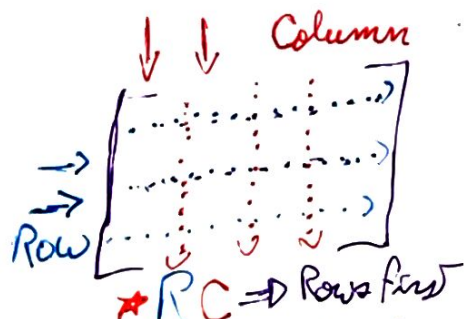 Column
Row
★ R C ⇒ Rows first